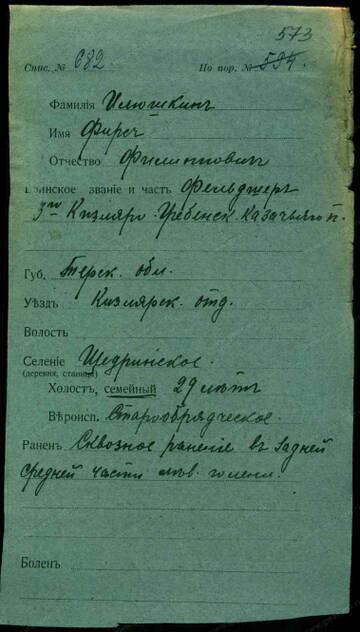 573
Спис. № 682 По пор. № 594.
Фамилія Илюшкинъ
Имя Фирсъ
Отчество Филипповичъ
Воинское званіе и часть Фельдшеръ
3го Кизляро-Гребенск. Казачьяго п.
Губ. Терск. обл.
Уѣздъ Кизлярск. отд.
Волость
Селеніе Щедринское.
(деревня, станица)
Холостъ, семейный 29 лѣтъ
Вѣроисп. Старообрядческое.
Раненъ Сквозное раненіе въ задней
средней части лѣв. голени.
Боленъ